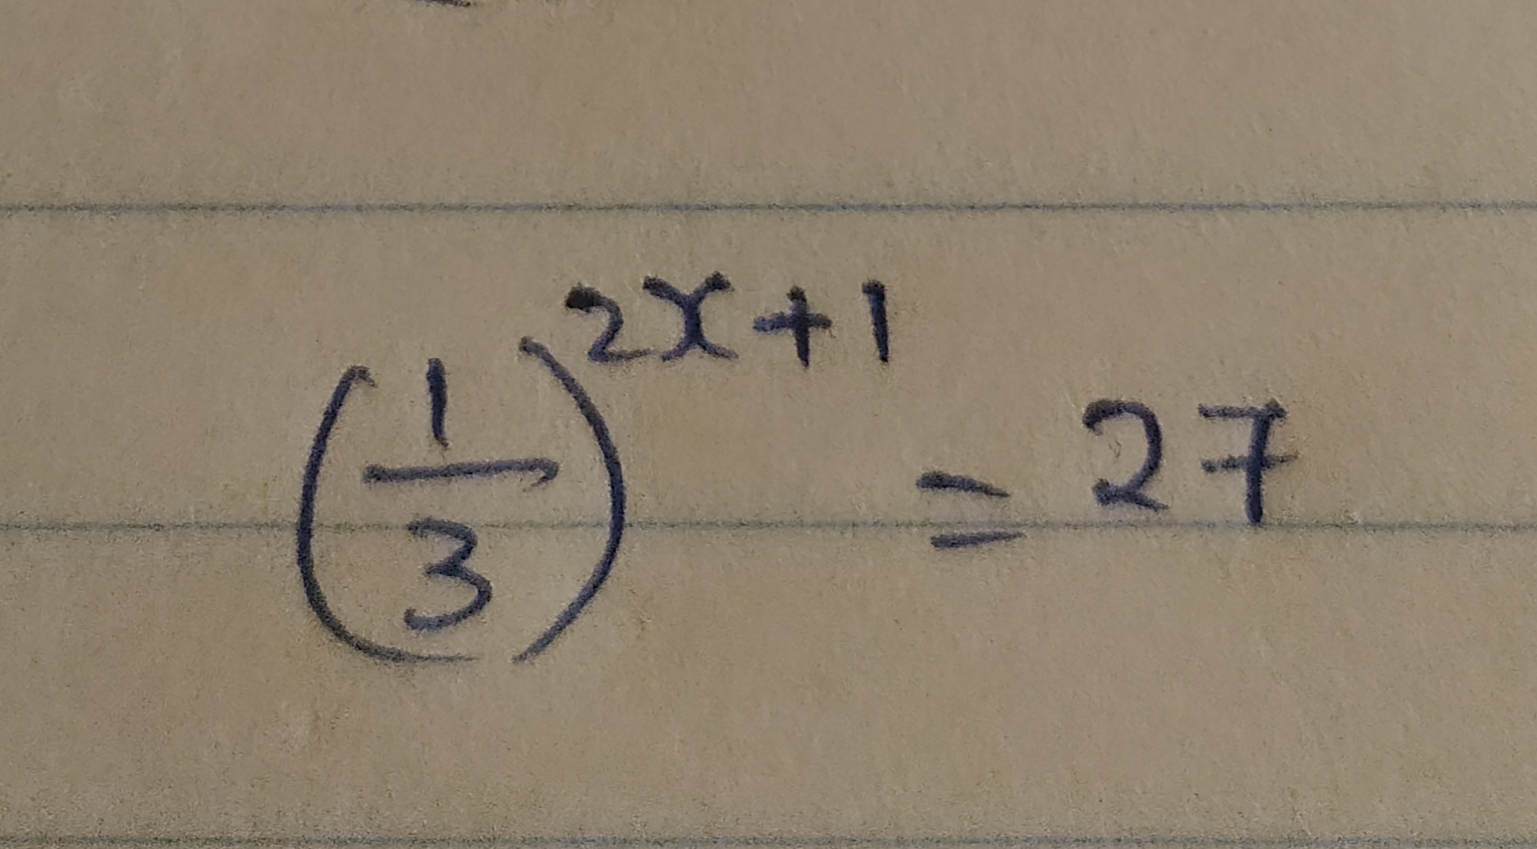 (1/3)^2x+1 = 27